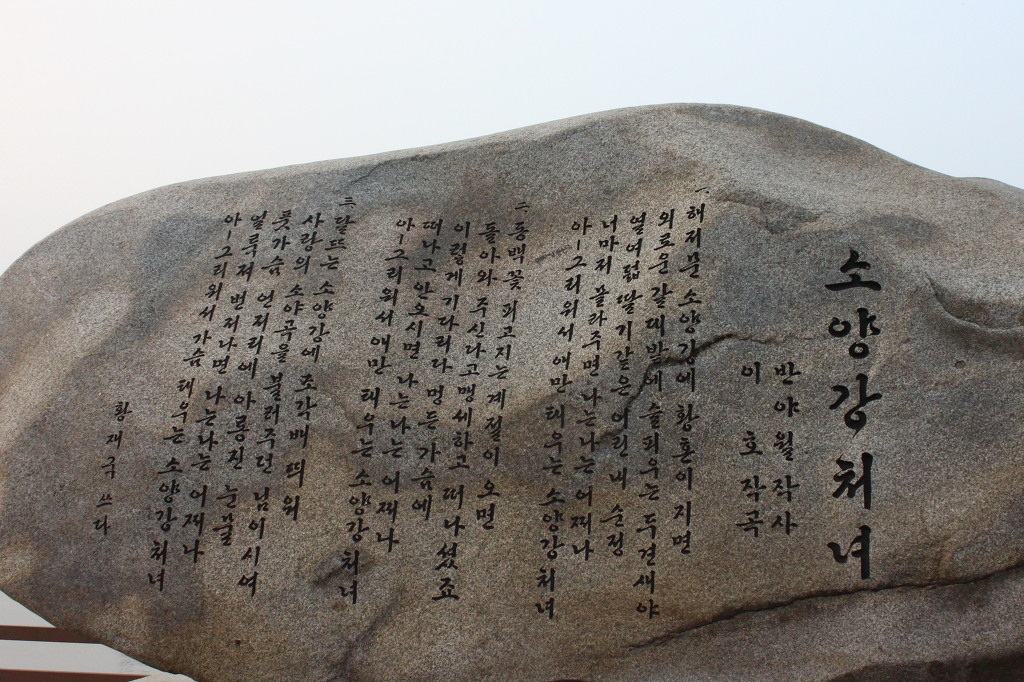 소양강처녀
반야월 작사
이 호 작곡
一 해저문 소양강에 황혼이 지면
외로운 갈대밭에 슬피우는 두견새야
열여덟 딸기같은 어린내 순정
너마저 몰라주면 나는나는 어쩌나
아-그리워서 애만 태우는 소양강처녀
二 동백꽃 피고지는 계절이 오면
돌아와 주신다고 맹세하고 떠나셨죠
이렇게 기다리다 멍든가슴에
떠나고 안오시면 나는나는 어쩌나
아-그리워서 애만 태우는 소양강처녀
三 달뜨는 소양강에 조각배 띄워
사랑의 소야곡을 불러주던 님이시여
풋가슴 언저리에 아롱진 눈물
얼룩져 번져나면 나는나는 어쩌나
아-그리워서 가슴 태우는 소양강처녀
황재국 쓰다